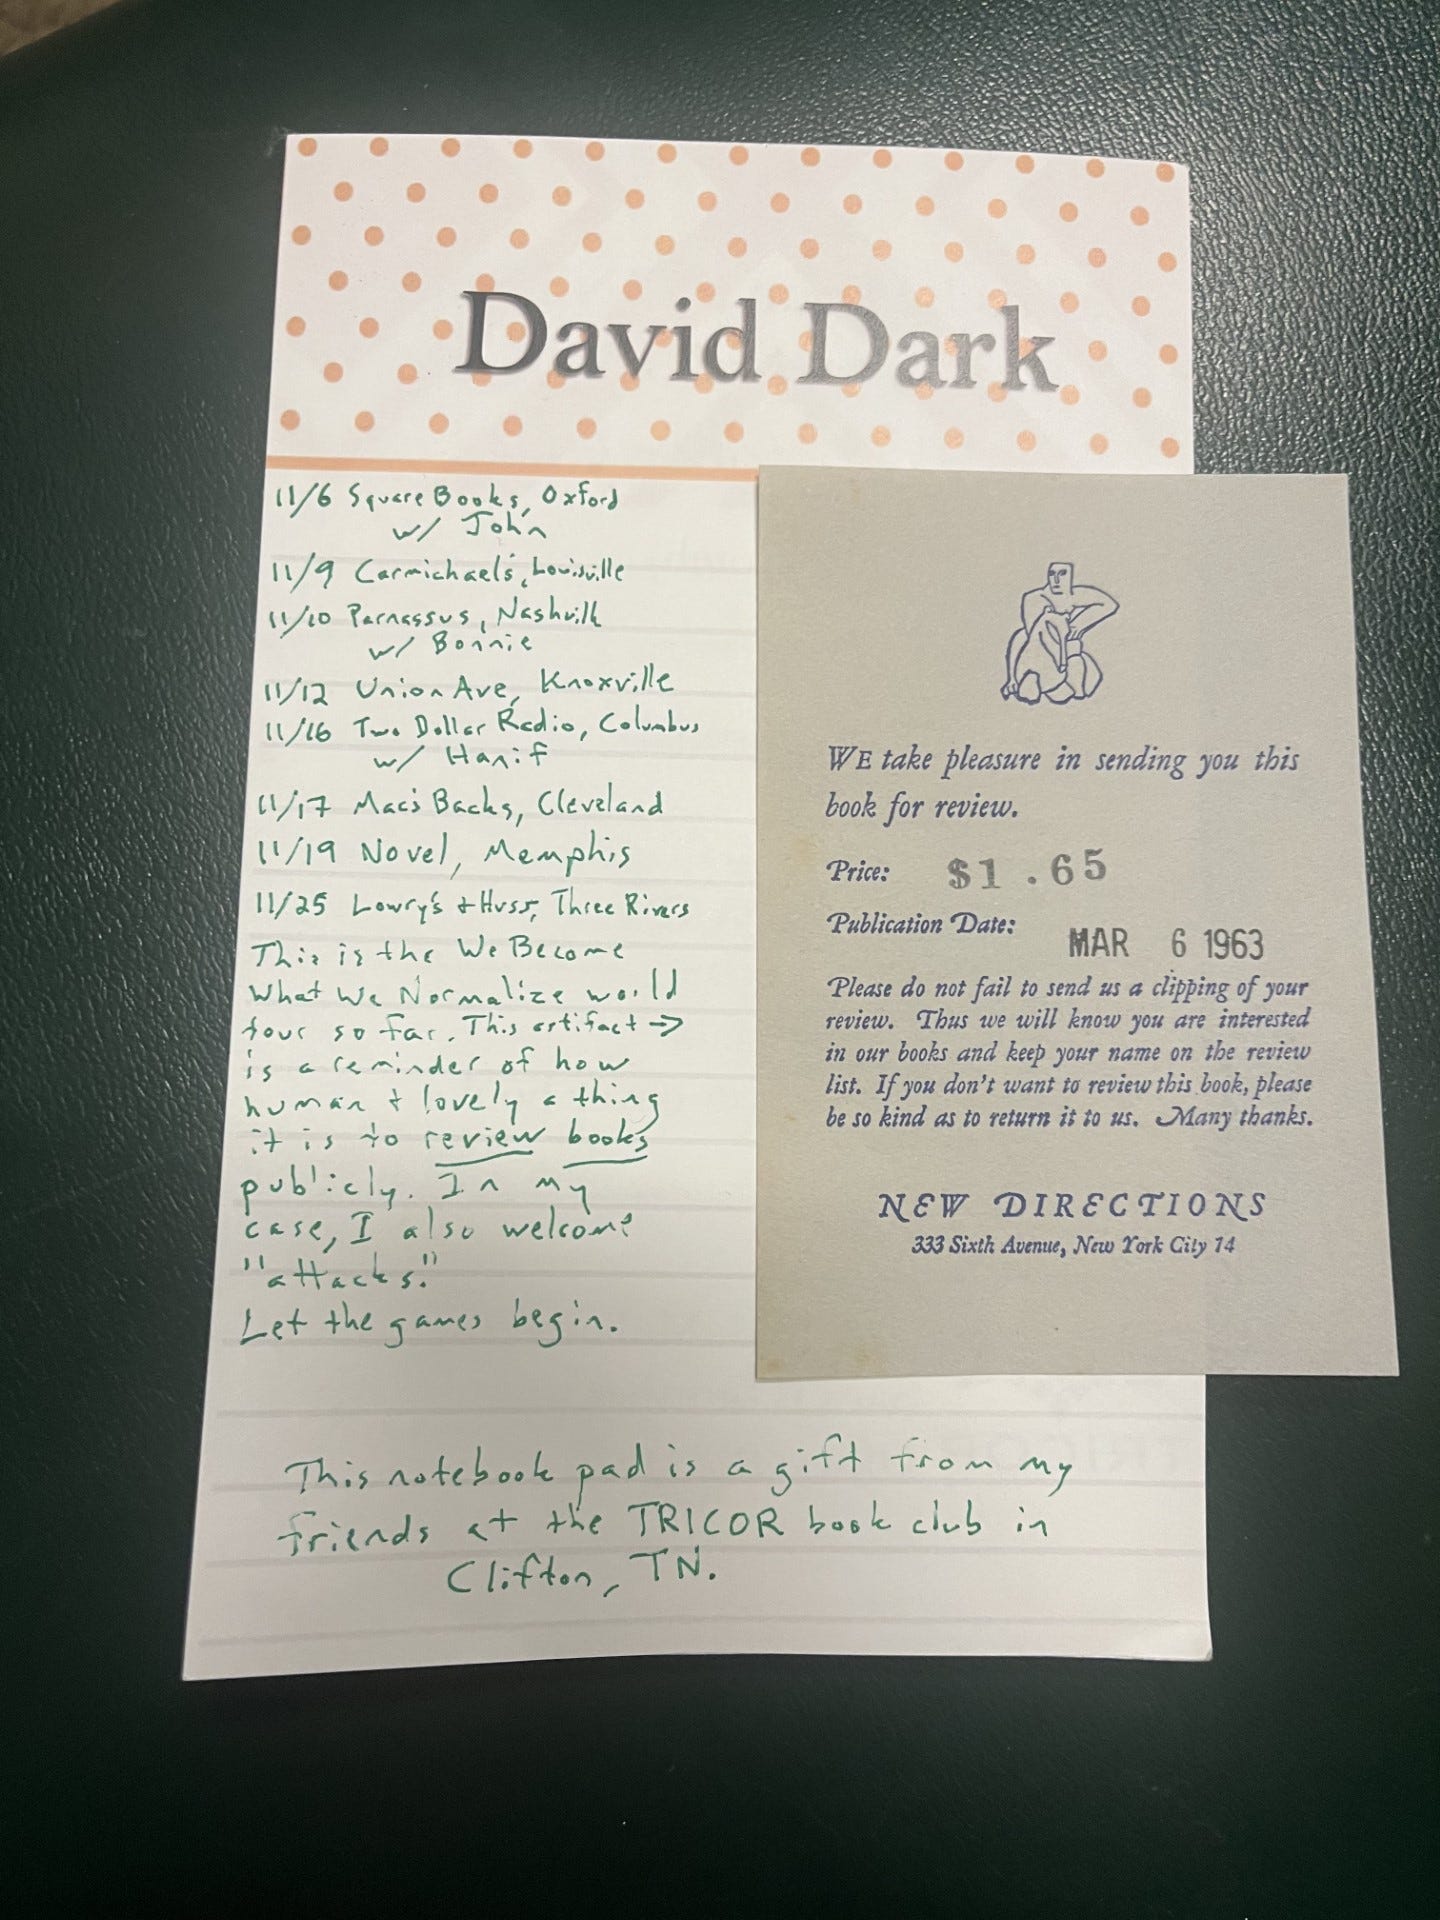 David Dark
11/6 Square Books, Oxford
w/ John
11/9 Carmichael's, Louisville
11/10 Parnassus, Nashville
w/ Bonnie
11/12 Union Ave, Knoxville
11/16 Two Dollar Radio, Columbus
w/ Hanif
11/17 Mac's Backs, Cleveland
11/19 Novel, Memphis
11/25 Lowry's + Huss, Three Rivers
This is the We Become
What We Normalize world
tour so far. This artifact →
is a reminder of how
human + lovely a thing
it is to review books
publicly. In my
case, I also welcome
"attacks."
Let the games begin.
This notebook pad is a gift from my
friends at the TRICOR book club in
Clifton, TN.
WE take pleasure in sending you this
book for review.
Price: $1.65
Publication Date: MAR 6 1963
Please do not fail to send us a clipping of your
review. Thus we will know you are interested
in our books and keep your name on the review
list. If you don't want to review this book, please
be so kind as to return it to us. Many thanks.
NEW DIRECTIONS
333 Sixth Avenue, New York City 14